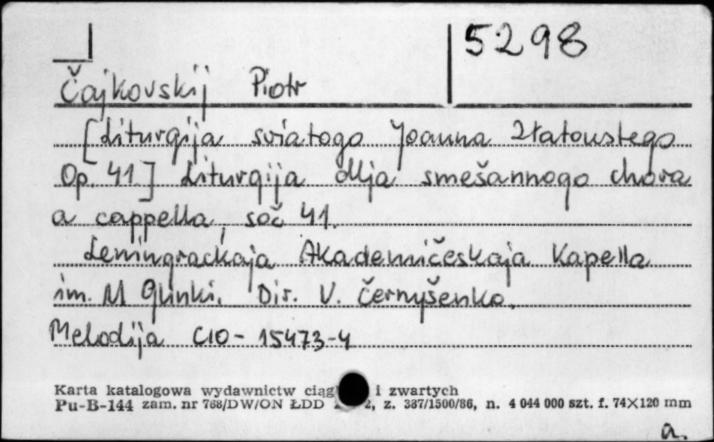 5298
Čajkovskij Piotr
[Liturgija sviatogo Joanna Złatoustego
Op. 41] Liturgija dlja smešannogo chora
a cappella, soč 41.
Leningrackaja Akademičeskaja Kapella
im. M Glinki. Dir. V. Černyšenko.
Melodija C10-15473-4
Karta katalogowa wydawnictw ciąg i zwartych
Pu-B-144 zam. nr 768/DW/ON ŁDD 2, z. 387/1500/86, n. 4 044 000 szt. f. 74×120 mm
a.